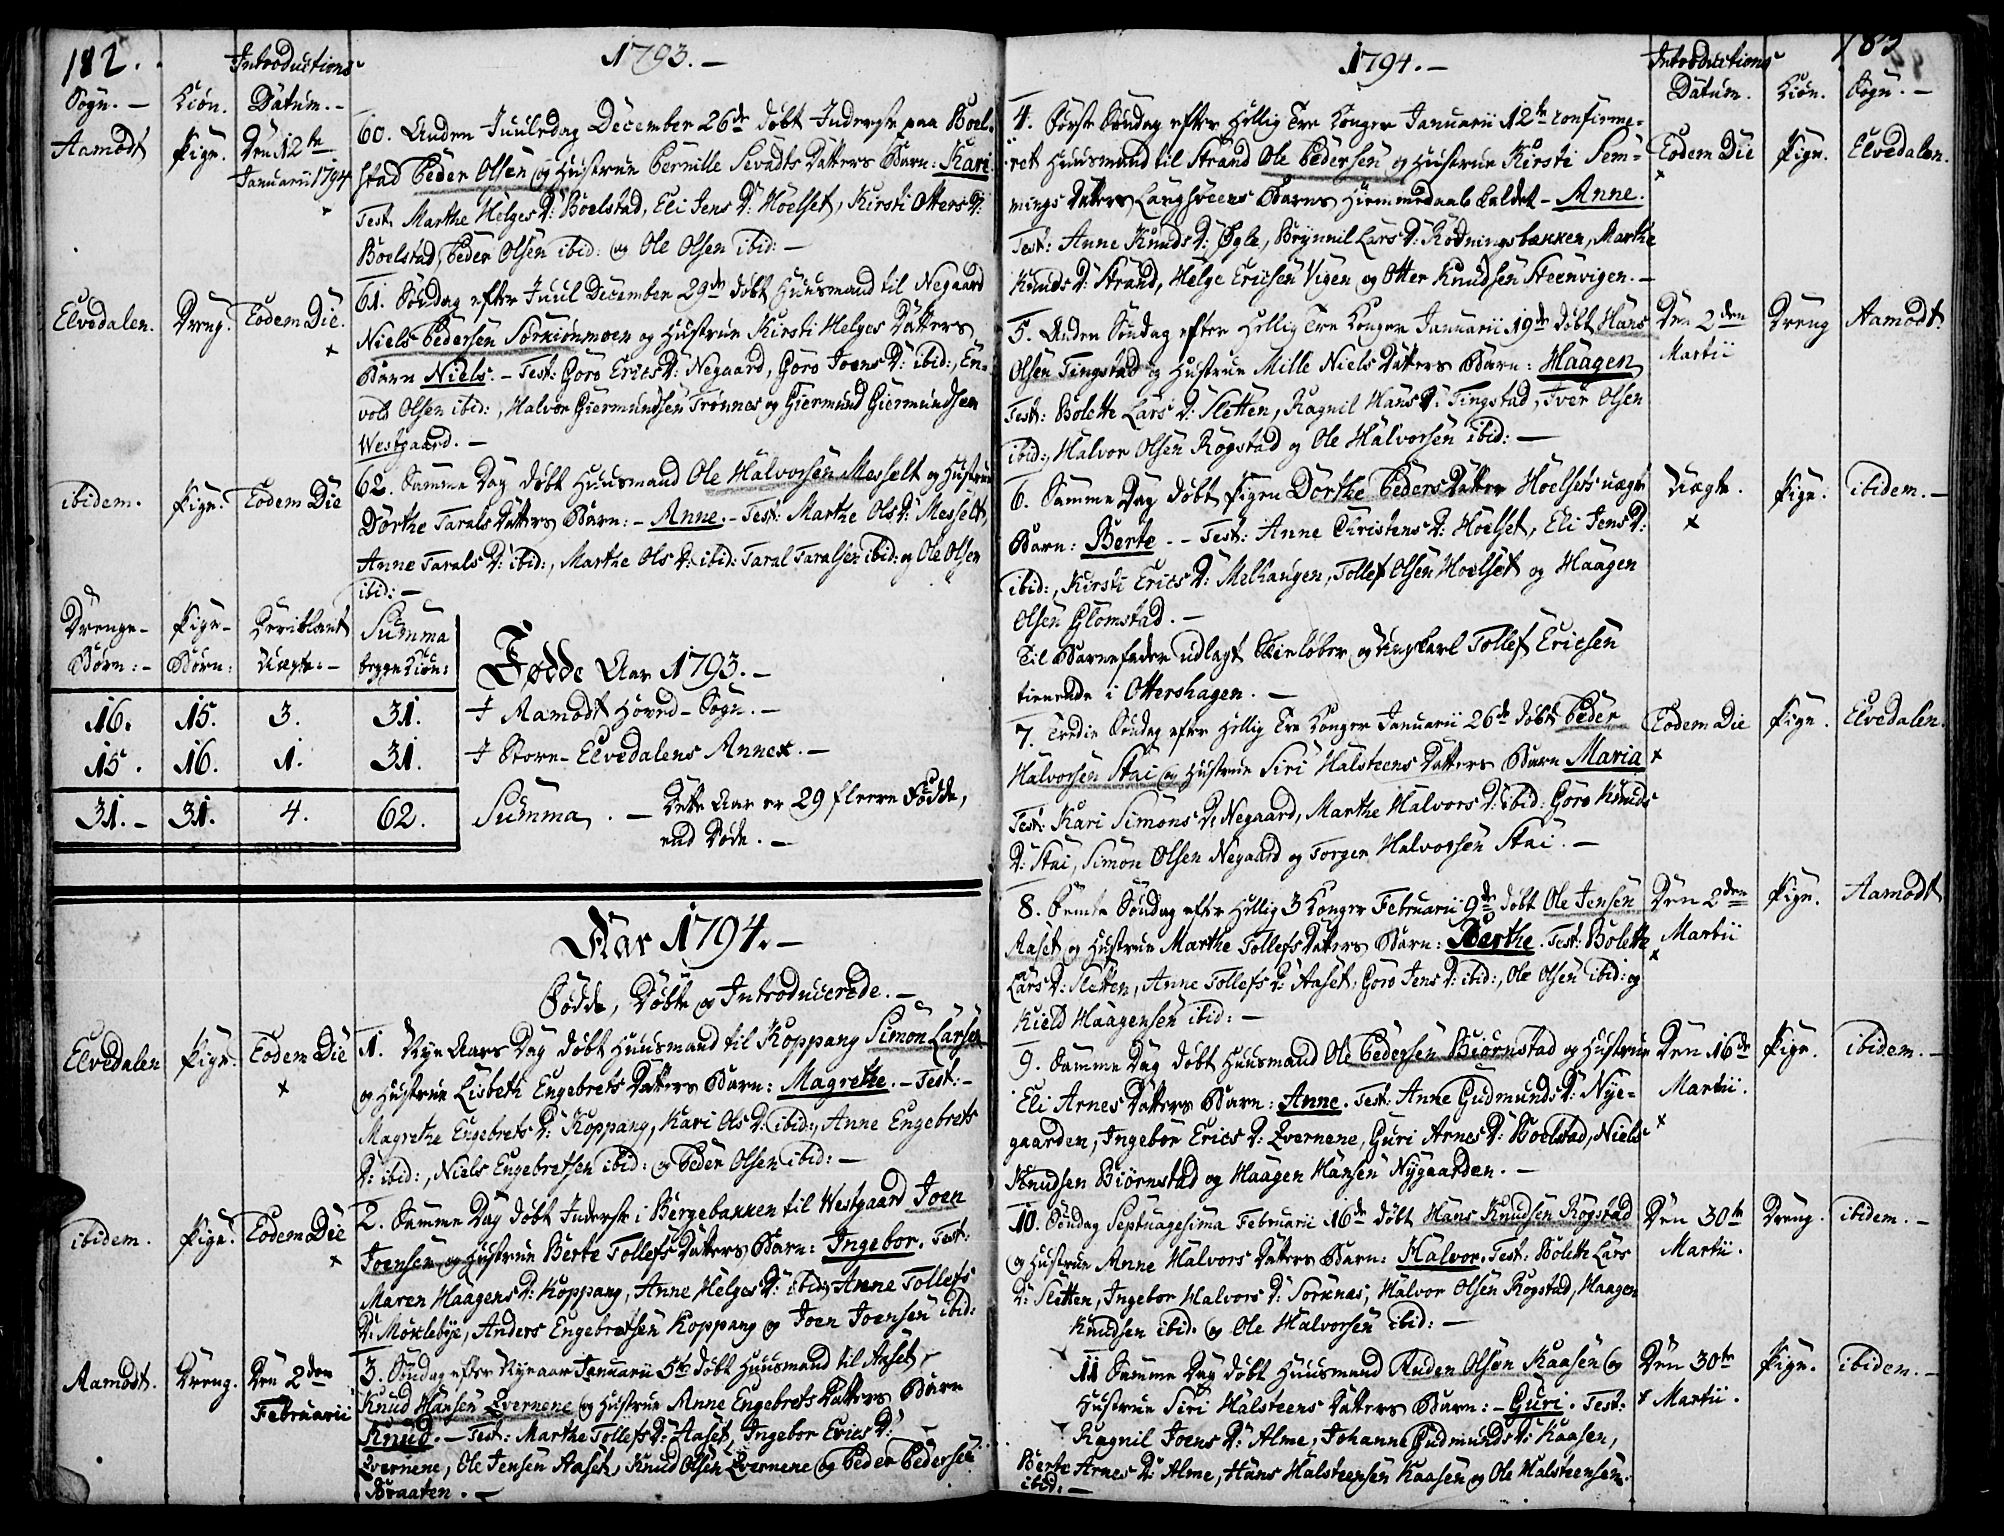 182.
1793.-
Introductions
Sogn.- Kiön. Datum.-
Aamodt Pige. Den 12te
Januarii 1794
60. Anden Juuledag December 26de döbt Inderste paa Boel-
stad Peder Olsen og Hustrue Pernille Sevadts Datters Barn: Kari.
Test. Marthe Helges D: Boelstad, Eli Jens D: Hoelset, Kirsti Otters D:
Boelstad, Peder Olsen ibid: og Ole Olsen ibid:-
Elvedalen. Dreng. Eodem Die.
61. Söndag efter Juul December 29de döbt Huusmand til Negaard
Niels Pedersen Sorkiönmoen og Hustrue Kirsti Helges Datters
Barn Niels.- Test: Goro Erics D: Negaard, Goro Joens D: ibid:, En-
vold Olsen ibid:, Halvor Giermundsen Trönnes og Giermund Giermundsen
Westgaard.-
ibidem. Pige. Eodem Die
62. Samme Dag döbt Huusmand Ole Halvorsen Messelt og Hustrue
Dorthe Tarals Datters Barn:- Anne.- Test: Marthe Ols D: Messelt,
Anne Tarals D: ibid:, Marthe Ols D: ibid: Taral Taralsen ibid: og Ole Olsen
ibid:-
Drenge- Pige- Heriblant Summa
Börn:- Börn: Uægte:- begge Kiön:
Fødde Aar 1793.-
16. 15. 3. 31. I Aamodt Hoved-Sogn.-
15. 16. 1. 31. I Store-Elvedalens Annex.-
31.- 31. 4. 62. Summa.- Dette Aar er 29 fleere Födde,
end Döde.-
Aar 1794.-
Födde, Döbte og Introducerede.-
Elvedalen Pige. Eodem Die
1. Nye Aars Dag döbt Huusmand til Koppang Simon Larsen
og Hustrue Lisbeth Engebrets Datters Barn: Magrethe.- Test:-
Magrethe Engebrets D: Koppang, Kari Ols D: ibid:, Anne Engebrets
D: ibid:, Niels Engebretsen ibid: og Peder Olsen ibid:-
ibidem. Pige. Eodem Die
2. Samme Dag döbt Inderste i Bergebakken til Westgaard Joen
Joensen og Hustrue Berte Tollefs Datters Barn: Ingebor. Test:
Maren Haagens D: Koppang, Anne Helges D: ibid: Anne Tollefs
D: Möklebÿe, Anders Engebretsen Koppang og Joen Joensen ibid:
Aamodt. Dreng. Den 2den
Februarii
3. Söndag efter Nyeaar Januarii 5te döbt Huusmand til Aaset
Knud Hansen Qvernene og Hustrue Anne Engebrets Datters Barn
Knud.- Test: Marthe Tollefs D: Aaset, Ingebor Erics D:
Qvernene, Ole Jensen Aaset, Knud Olsen Qvernene og Peder Pedersen
Braaten.-
183
1794.-
Introductions
Datum. Kiön. Sogn.-
4. Förste Söndag efter Hellig Tre Konger Januarii 12te confirme-
ret Huusmand til Strand Ole Pedersen og Hustrue Kirsti Sem-
mings Datters Langhveens Barns Hiemmedaab kaldet- Anne.
Test: Anne Knuds D: Ögle, Brynnil Lars D: Rödningsbækken, Marthe
Knuds D: Strand, Helge Ericsen Vigen og Otter Knudsen Steenvigen.-
Eodem Die Pige. Elvedalen.
5. Anden Söndag efter Hellig Tre Konger Januarii 19de döbt Hans
Olsen Tingstad og Hustrue Mille Niels Datters Barn: Haagen
Test: Bolette Lars D: Sletten, Ragnil Hans D: Tingstad, Iver Olsen
ibid:, Halvor Olsen Rogstad og Ole Halvorsen ibid:-
Den 2den Dreng Aamodt.
Martii
6. Samme Dag döbt Pigen Dorthe Peders Datter Hoelsets uægte
Barn: Berte.- Test: Anne Christens D: Hoelset, Eli Jens D:
ibid:, Kirsti Erics D: Melhaugen, Tollef Olsen Hoelset og Haagen
Olsen Glomstad.-
Til Barnefader udlagt Skieløber og Ungkarl Tollef Ericsen
tienende i Ottershagen.-
Uægte. Pige. ibidem.-
7. Tredie Söndag efter Hellig Tre Konger Januarii 26de döbt Peder
Halvorsen Stai og Hustrue Siri Halsteens Datters Barn Maria
Test: Kari Simons D: Negaard, Marthe Halvors D: ibid: Goro Knuds
D: Stai, Simon Olsen Negaard og Torger Halvorsen Stai.-
Eodem Die Pige. Elvedalen.
8. Femte Söndag efter Hellig 3 Konger Februarii 9de döbt Ole Jensen
Aaset og Hustrue Marthe Tollefs Datters Barn: Berthe. Test: Bolette
Lars D: Sletten, Anne Tollefs D: Aaset, Goro Jens D: ibid:, Ole Olsen ibid: og
Kield Haagensen ibid:-
Den 2den Pige. Aamodt
Martii
9. Samme Dag döbt Huusmand Ole Pedersen Biörnstad og Hustrue
Eli Arnes Datters Barn: Anne. Test: Anne Gudmunds D: Nye-
gaarden, Ingebor Erics D: Qvernene, Guri Arnes D: Boelstad, Niels
Knudsen Biörnstad og Haagen Hansen Nygaarden.-
Den 16de Pige. ibidem.-
Martii.
10. Söndag Septuagesima Februarii 16de döbt Hans Knudsen Rogstad
og Hustrue Anne Halvors Datters Barn: Halvor. Test: Bolette Lars
D: Sletten, Ingebor Halvors D: Sorknas, Halvor Olsen Rogstad, Haagen
Knudsen ibid. og Ole Halvorsen ibid:-
Den 30te Dreng. ibidem.-
Martii.
11 Samme Dag döbt Huusmand Auden Olsen Kaasen og
Hustrue Siri Halsteens Datters Barn:- Guri. Test:
Ragnil Joens D: Alme, Johanne Gudmunds D: Kaasen,
Berte Arnes D: Alme, Hans Halsteensen Kaasen og Ole Halsteensen
ibid:-
Den 30te Pige. ibidem.-
Martii.